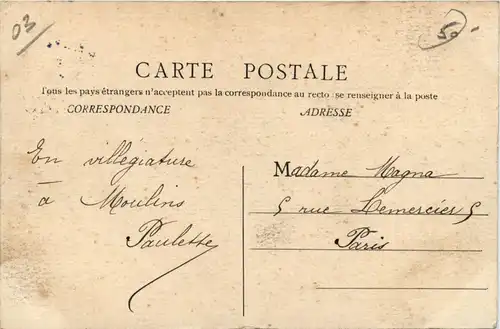 03
50
CARTE POSTALE
Tous les pays étrangers n'acceptent pas la correspondance au recto: se renseigner à la poste
CORRESPONDANCE
ADRESSE
En villégiature
à Moulins
Paulette
Madame Magna
5 rue Lemercier 5
Paris